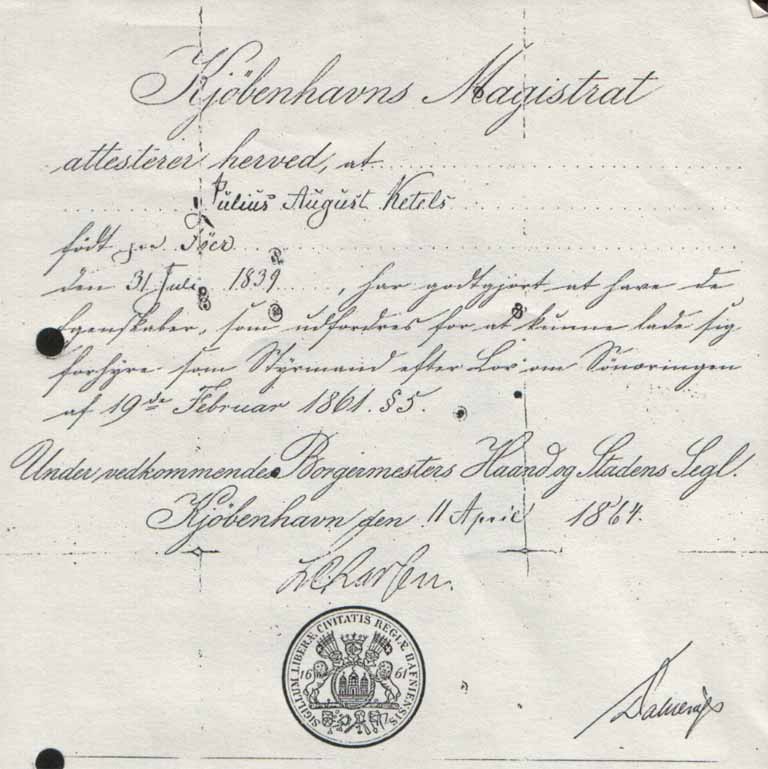 Kjöbenhavns Magistrat
attesterer herved, at
Julius August Ketels
født paa Föer
den 31 Juli 1839, har godtgjort at have de
Egenskaber, som udfordres for at kunne lade sig
forhyre som Styrmand efter Lov om Sönæringen
af 19de Februar 1861. § 5.
Under vedkommende Borgermesters Haand og Stadens Segl.
Kjöbenhavn den 11 April 1864.
L C Larsen.
SIGILLUM LIBERÆ CIVITATIS REGIÆ HAFNIENSIS
1661